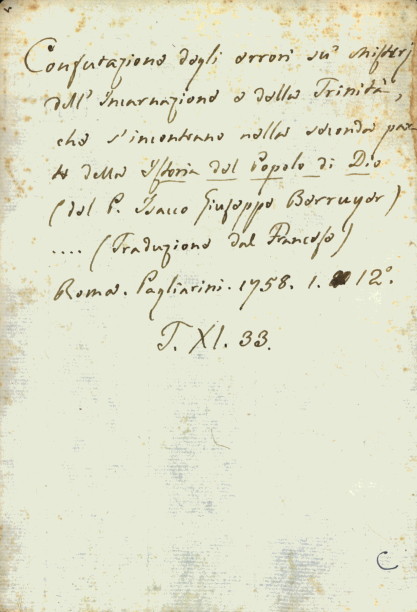 Confutazione degli errori su' Misterj
dell' Incarnazione e della Trinità,
che s'incontrano nella seconda par
te della Istoria del Popolo di Dio
(del P. Isacco Giuseppe Berruyer)
.... (Traduzione dal Francese)
Roma. Pagliarini. 1758. 1. 12°.
T. XI. 33.
C